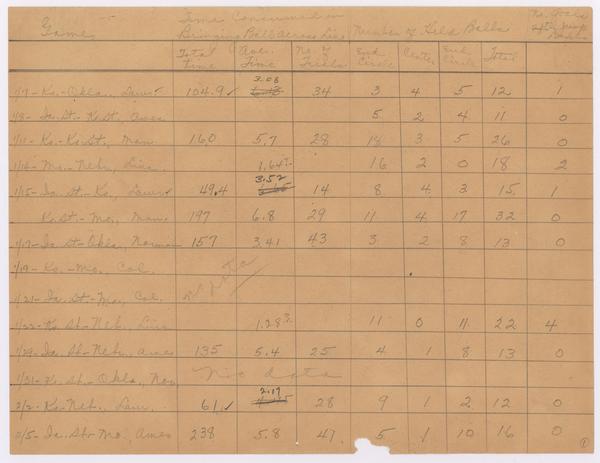 Games Time Consumed in Bringing Ball Across Line Number of Held Balls No. Goals
Total Time Ave. Time No. of Trials End Circle Center End Circle Total
1/7- Ks.-Okla., Law. 104.9 3.08 34 3 4 5 12 1
1/8- Ia. St.-K. St., Ames 5 2 4 11 0
1/11- Ks.-K. St., Man 160 5.7 28 18 3 5 26 0
1/14- Mo.-Nebr., Linc. 1.64 16 2 0 18 2
1/15- Ia. St.-Ks., Law. 49.4 3.52 14 8 4 3 15 1
K. St.-Mo., Man 197 6.8 29 11 4 17 32 0
1/17- Ia. St.-Okla., Norman 157 3.41 43 3 2 8 13 0
1/19- Ks.-Mo., Col. no data
1/21- Ia. St.-Mo., Col.
1/22- K. St.-Nebr., Linc 1.28 11 0 11 22 4
1/29- Ia. St.-Nebr., Ames 135 5.4 25 4 1 8 13 0
1/31- K. St.-Okla., Nor. No data
2/2- Ks.-Nebr., Law. 61 2.17 28 9 1 2 12 0
2/5- Ia. St.-Mo., Ames 238 5.8 41 5 1 10 16 0
1